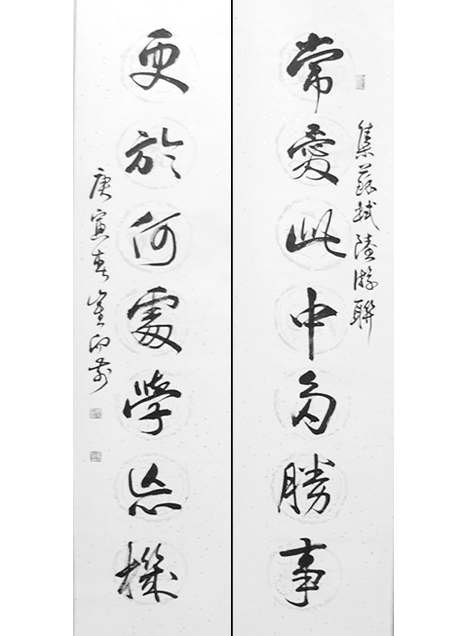 集蘇軾陸游聯
常愛此中多勝事
更於何處學忘機
庚寅春